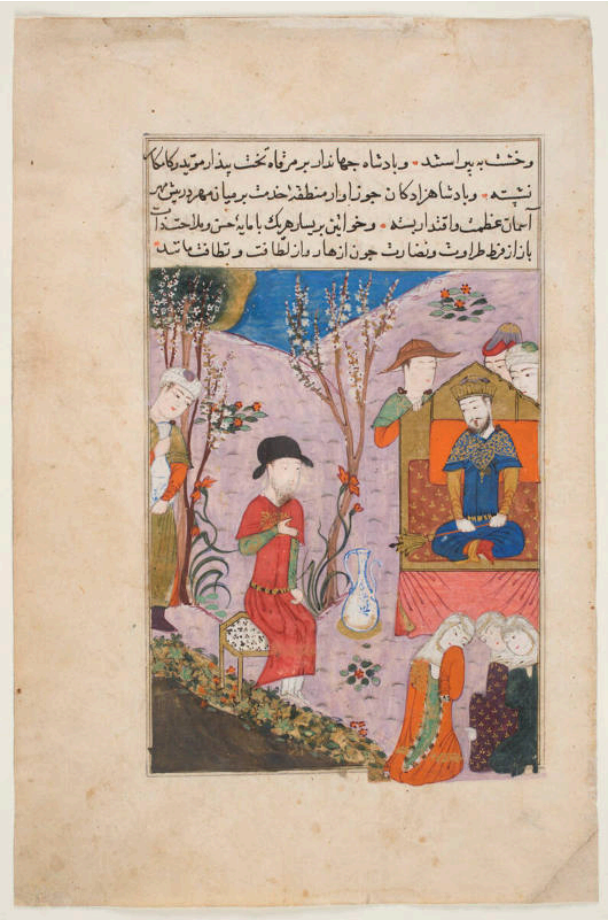 وخشت به پیراستند و بادشاه جهاندار بر مرقاه تخت پیذار موید و کامکار
نشسته و بادشاهزادکان جوزاوار منطقهٔ خدمت بر میان مهر ورزش بر
آستان عظمت و اقتدار بسته و خواتین بر یسار هر یک با مایهٔ حسن و ملاحت ذات
باز از فرط طراوت و نضارت چون ازهار و از لطافت و نظافت مانند